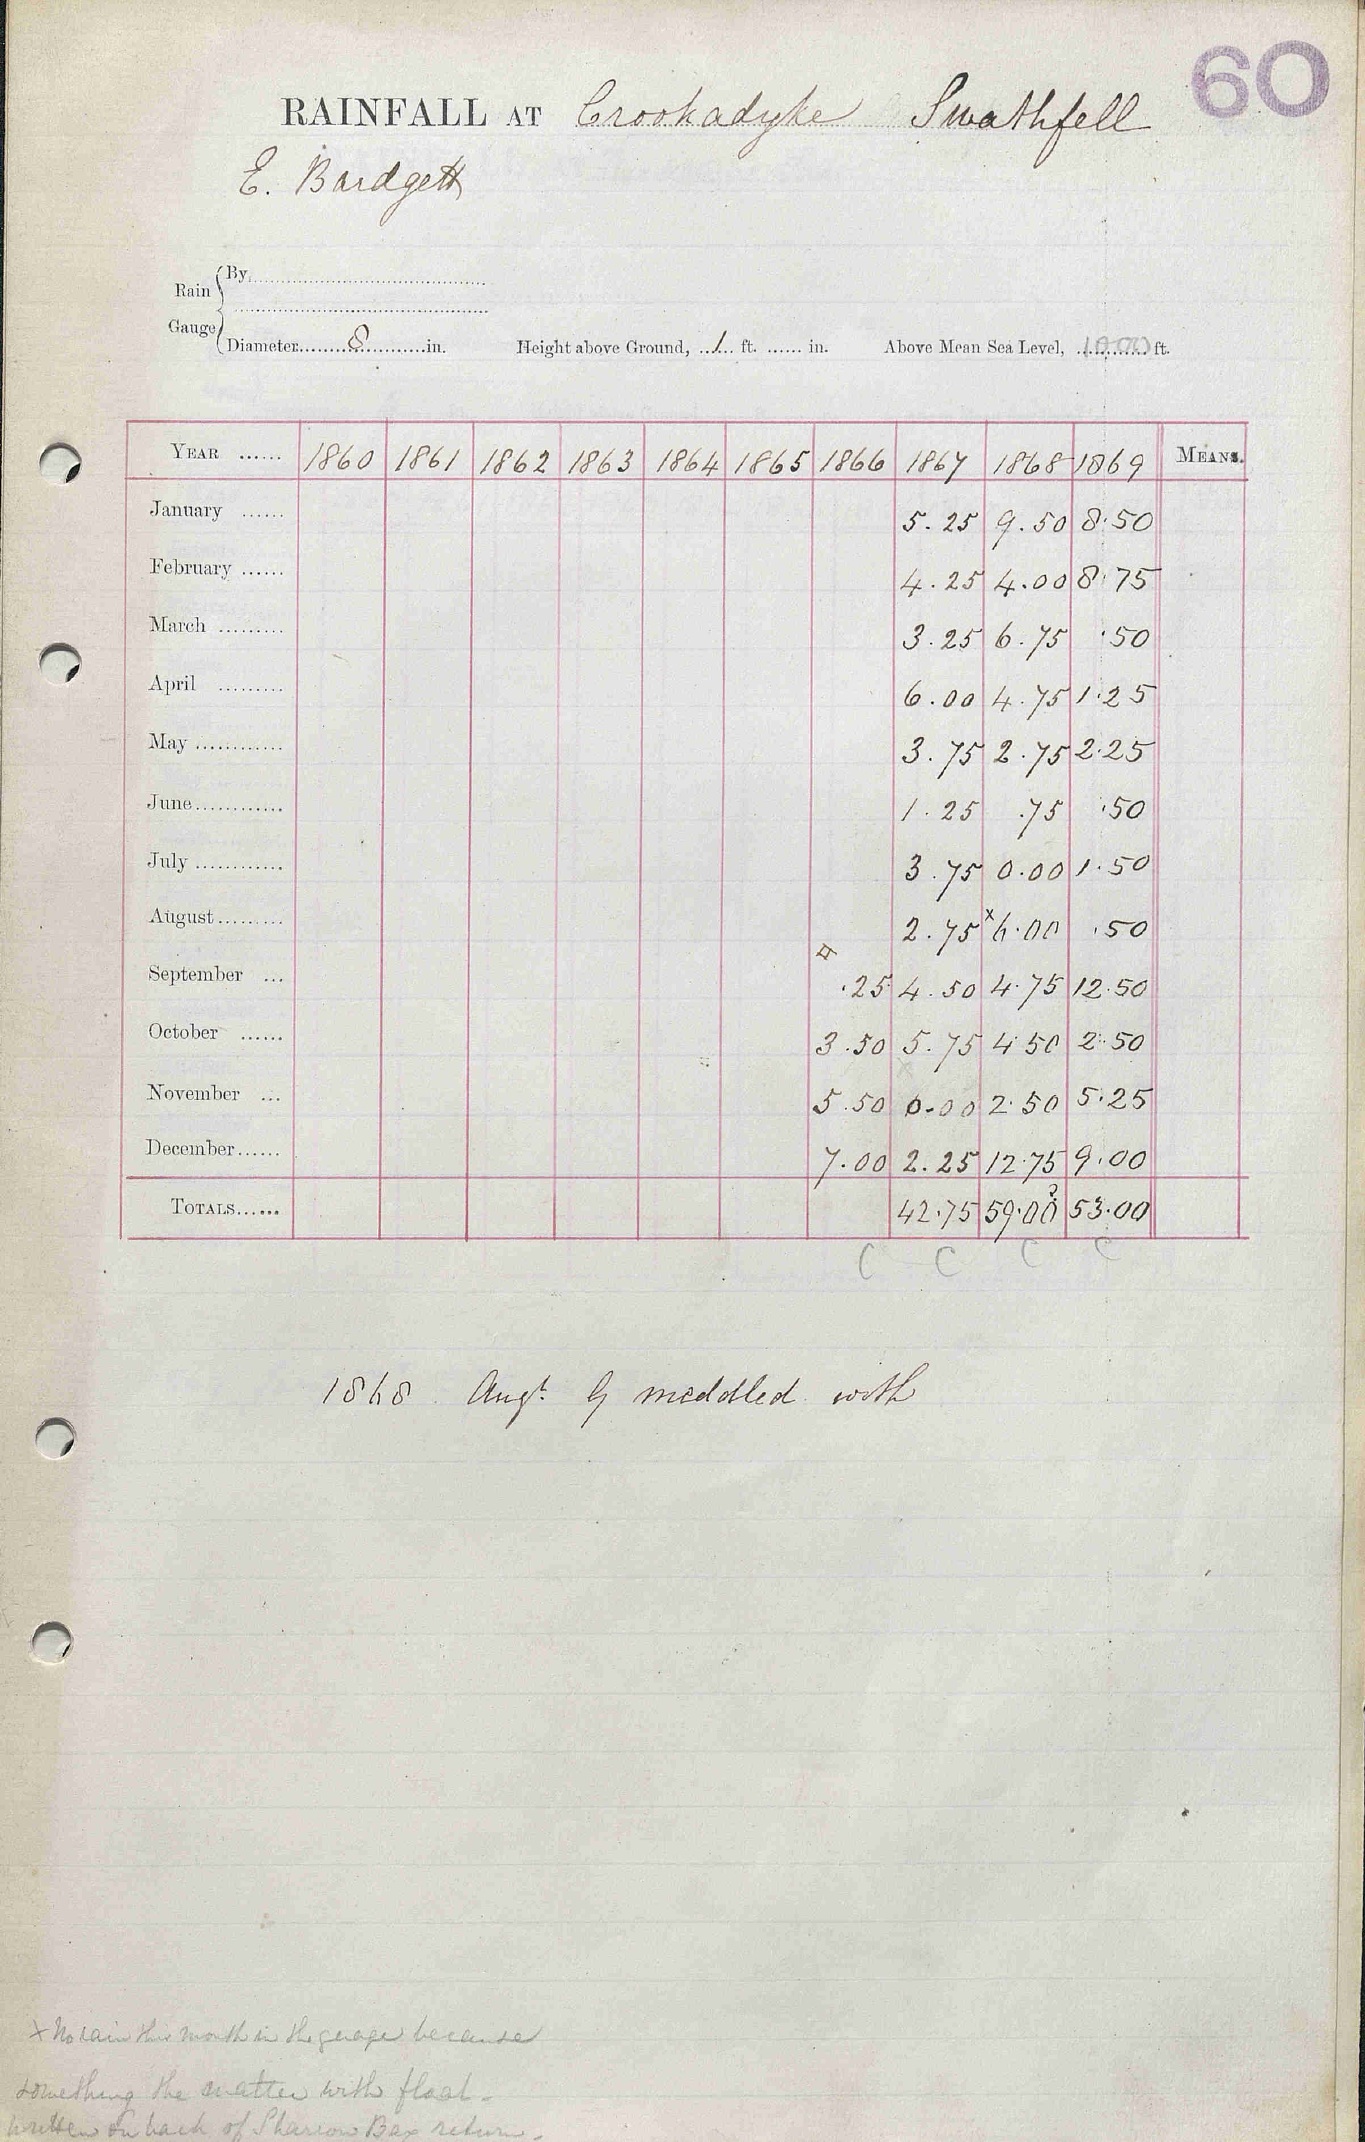 60
RAINFALL AT Crookadyke Swathfell
E. Bardgett
Rain Gauge
By
Diameter 8 in. Height above Ground, 1 ft. in. Above Mean Sea Level, 1000 ft.
YEAR 1860 1861 1862 1863 1864 1865 1866 1867 1868 1869 MEANS.
January 5.25 9.50 8.50
February 4.25 4.00 8.75
March 3.25 6.75 .50
April 6.00 4.75 1.25
May 3.75 2.75 2.25
June 1.25 .75 .50
July 3.75 0.00 1.50
August 2.75 x6.00 .50
September .25 4.50 4.75 12.50
October 3.50 5.75 4.50 2.50
November 5.50 0.00 2.50 5.25
December 7.00 2.25 12.75 9.00
TOTALS 42.75 59.00? 53.00
C C C C
1868 Augt. G meddled with
x No rain this month in the guage because
something the matter with float -
written on back of Sharrow Bay return.